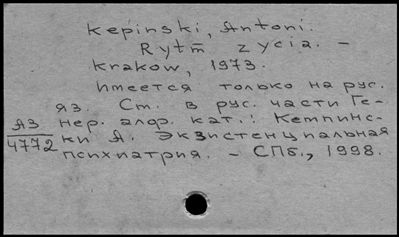 Kepinski, Antoni.
Rytm zycia. –
Krakow, 1973.
Имеется только на рус.
яз. См. в рус. части Ге-
нер. алф. кат.: Кемпинс-
ки А. Экзистенциальная
психиатрия. – СПб., 1998.
АЗ
4772